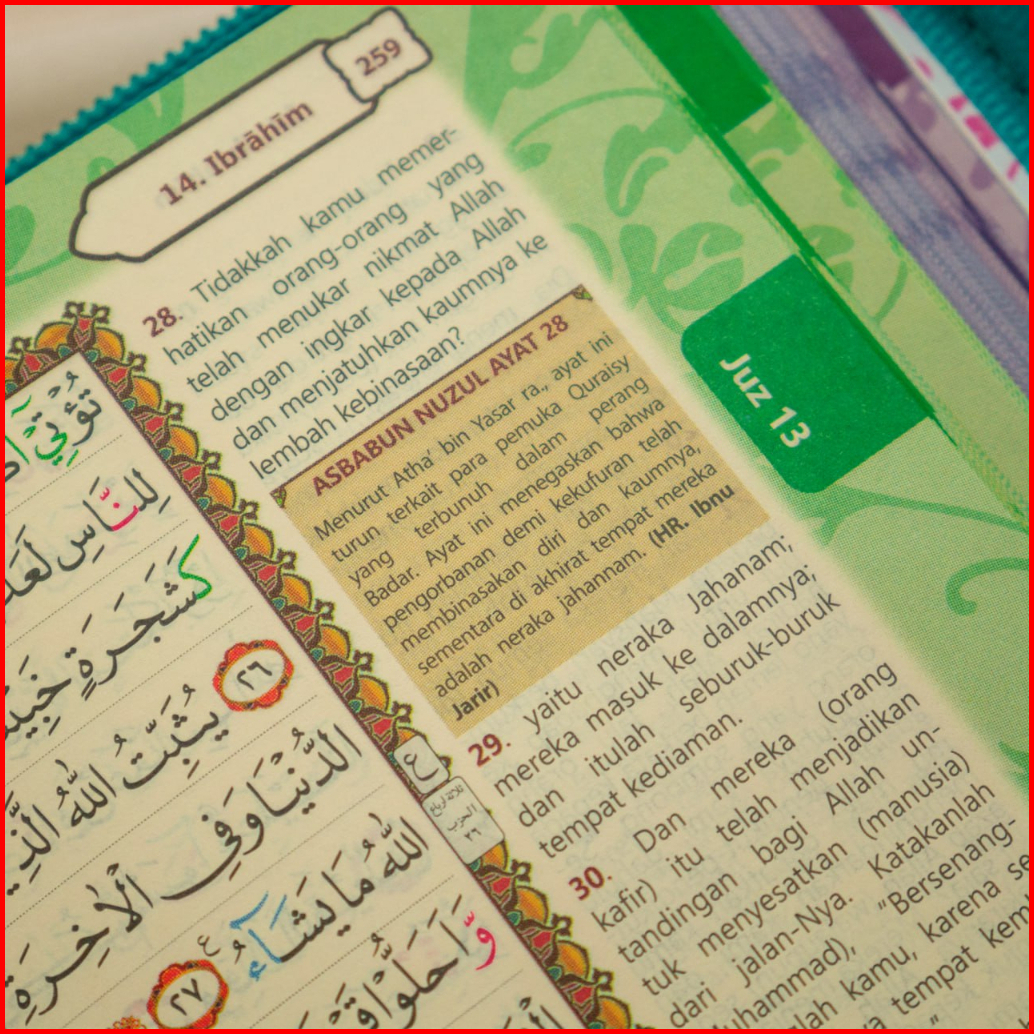 259
14. Ibrāhīm
28. Tidakkah kamu memer-
hatikan orang-orang yang
telah menukar nikmat Allah
dengan ingkar kepada Allah
dan menjatuhkan kaumnya ke
lembah kebinasaan?
ASBABUN NUZUL AYAT 28
Menurut Atha' bin Yasar ra., ayat ini
turun terkait para pemuka Quraisy
yang terbunuh dalam perang
Badar. Ayat ini menegaskan bahwa
pengorbanan demi kekufuran telah
membinasakan diri dan kaumnya,
sementara di akhirat tempat mereka
adalah neraka jahannam. (HR. Ibnu
Jarir)
29. yaitu neraka Jahanam;
mereka masuk ke dalamnya;
dan itulah seburuk-buruk
tempat kediaman.
30. Dan mereka (orang
kafir) itu telah menjadikan
tandingan bagi Allah un-
tuk menyesatkan (manusia)
dari jalan-Nya. Katakanlah
uhammad), "Bersenang-
lah kamu, karena se
tempat kem
Juz 13
تُؤْتِيٓ
لِلنَّاسِ لَعَلَّ
كَشَجَرَةٍ خَبِيثَ
٢٦
يُثَبِّتُ اللّٰهُ الَّذِ
الدُّنْيَا وَفِى الْاٰخِرَةِ
٢٧ اللّٰهُ مَا يَشَاۤءُ ع
وَّاَحَلُّوْا قَوْ
ثلاثة ارباع
الحزب
٢٦